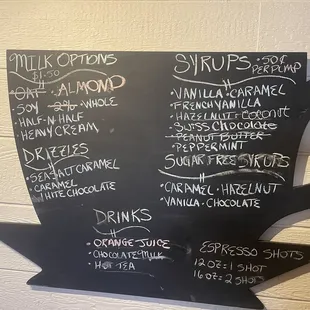 MILK OPTIONS
$1.50
OAT · ALMOND
· SOY 2% · WHOLE
· HALF-N-HALF
· HEAVY CREAM
DRIZZLES
· SEA SALT CARAMEL
· CARAMEL
· WHITE CHOCOLATE
SYRUPS · 50¢
PER PUMP
· VANILLA · CARAMEL
· FRENCH VANILLA
· HAZELNUT · COCONUT
· SWISS CHOCOLATE
· PEANUT BUTTER
· PEPPERMINT
SUGAR FREE SYRUPS
· CARAMEL · HAZELNUT
· VANILLA · CHOCOLATE
DRINKS
· ORANGE JUICE
· CHOCOLATE MILK
· HOT TEA
ESPRESSO SHOTS
12 OZ = 1 SHOT
16 OZ = 2 SHOT